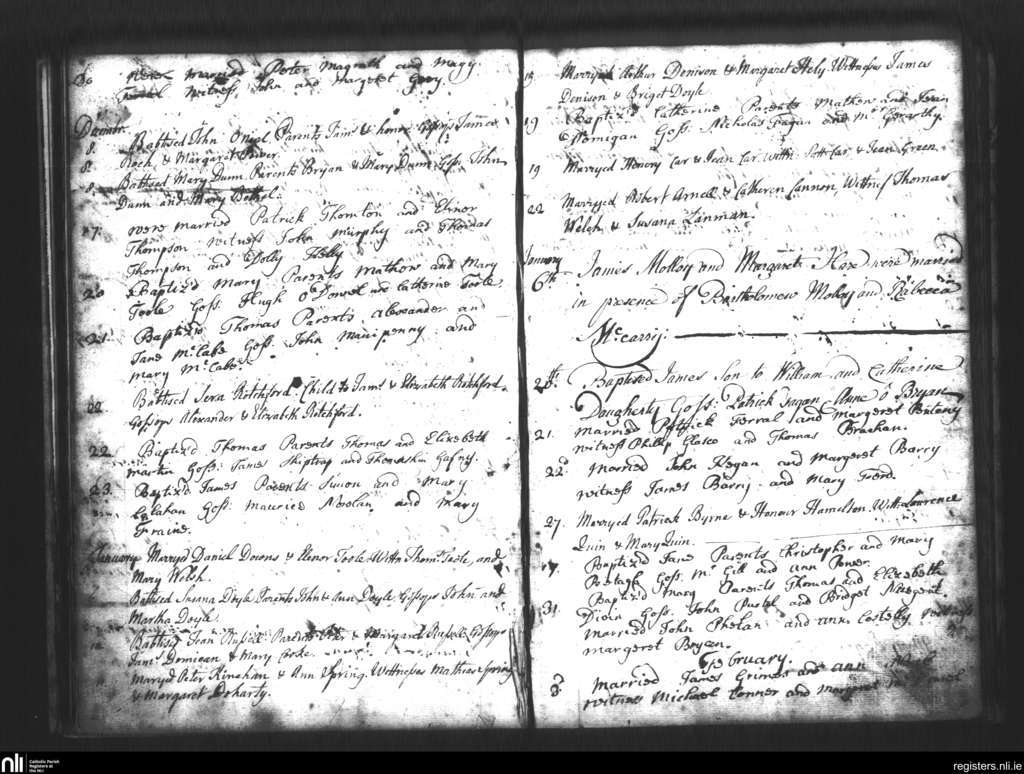 30 were married Peter Magrath and Mary
witness, John and Margeret Gory.
Decembr
8. Baptised John Oneal, Parents Jams & honor Gossops James
8. Rock, & Margaret
9. Batised Mary Dunn, Parents Bryan & Mary Dunn Goss. John
Dunn and Mary
17. were married Patrick Thornton and Elinor
Thompson witness John murphy and Thomas
Thompson and Dolly Kelly
20 Baptiz'd Mary Parents Mathew and Mary
Toole Goss. Hugh O'Donnel and Catherine Toole.
21. Baptiz'd Thomas Parents alexander and
Jane McCabe Goss. John Manipenny and
mary McCabe.
22. Batised Sera Rotchford Child to Jams & Elizabeth Rotchford.
Gossops Alexander & Elizabeth Rotchford.
22. Baptiz'd Thomas Parents Thomas and Elizebeth
martin Goss. James Shiptrap and Gafny.
23. Baptiz'd James Parents Simon and Mary
Goss. Maurice Noolan and Mary
Fraine.
January Maryd Daniel Downs & Elenor Toole Wittn Thoms Toole, and
Mary Welsh.
Batised Susana Doyle Parents John & Ann Doyle, Gossops John and
Martha Doyle.
Batised Jean Russill Parents Peter & Margaret Russell Gossops
Jams Dornican & Mary Cooke.
Maryd Peter Kinahan & Ann Spring. Wettnesses Mathias Spring
& Margaret Doharty.
15 Marryed Arthur Denison & Margaret Hely Wittneses James
Denison & Briget Doyle
19 Baptiz'd Catherine Parents Mathew and Jean
Kernigan Goss. Nicholas Fagan and
19 Marryed Henery Car & Jean Car. Wittn. Scott Car & Jean Green.
22 Marryed Robert Arnell & Catheren Cannon, Wittness Thomas
Welsh & Susana Linman.
January
6th James Molloy and Margaret Hare were married
in presence of Bartholomew Molloy and Rebecca
Mc.carry.
20th. Baptised James Son to William and Catherine
Dougherty Goss. Patrick Fagan Anne O Bryan
21. married Patrick Ferral and Margeret
witness Phillip Glasco and Thomas Brachan.
22d married John Hegan and Margeret Barry
witness James Barry and Mary Foord.
27 Marryed Patrick Byrne & Honour Hamelton. Witt. Lawrence
Quin & Mary Quin.
Baptiz'd Jane Parents Christopher and Mary
Goss. Mc Gill and ann Power.
Baptiz'd Mary Parents Thomas and Elizebeth
31. Divin Goss. John and Bridget Nugent.
married John Phelan and ann Costelly
margeret Bryan.
February.
married James Grimes and ann
witness Michael Conner and Margeret
nli
Catholic Parish
Registers at
the NLI
registers.nli.ie